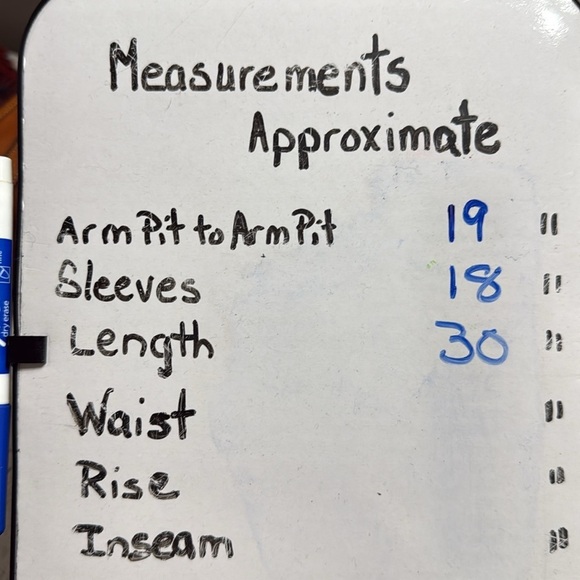 Measurements
Approximate
Arm Pit to Arm Pit 19 "
Sleeves 18 "
Length 30 "
Waist "
Rise "
Inseam "
dry erase